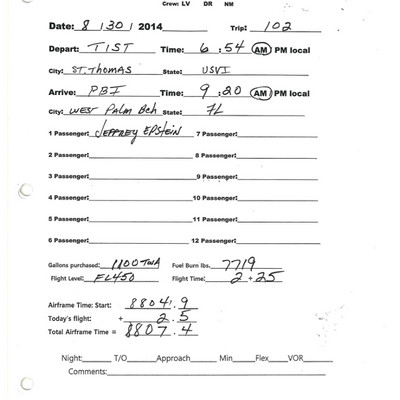 Crew: LV DR NM
Date: 8 /30/ 2014 Trip: 102
Depart: TIST Time: 6 : 54 AM PM local
City: ST. THOMAS State: USVI
Arrive: PBI Time: 9 :20 AM PM local
City: WEST PALM Bch State: FL
1 Passenger: JEFFREY EPSTEIN 7 Passenger:
2 Passenger: 8 Passenger:
3 Passenger: 9 Passenger:
4 Passenger: 10 Passenger:
5 Passenger: 11 Passenger:
6 Passenger: 12 Passenger:
Gallons purchased: 1100 TWA Fuel Burn lbs. 7719
Flight Level: FL450 Flight Time: 2 + 25
Airframe Time: Start: 8804.9
Today's flight: + 2.5
Total Airframe Time = 8807.4
Night: T/O Approach Min Flex VOR
Comments: